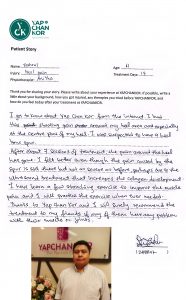 YAP
CHAN
KOR
Patient Story
Name:
Age:
Injury: heel pain
Treatment Date:
Physiotherapist:
Thank you for sharing your story. Please write about your experience at YAPCHANKOR. If possible, write a
about your background, how you got injured, any therapies you tried before YAPCHANKOR, and
how do you feel today after your treatment at YAPCHANKOR.
I got to know about Yap Chan Kor from the internet. I had
shooting pain around my heel area and especially
at the centre part of my heel. I was suspected to have a heel
bone spur.
After about 3 sessions of treatment, the pain around the heel
has gone. I felt better even though the pain caused by the
spur is still there but not as severe as before, perhaps due to the
ultrasound treatment that increases the collagen development.
I have learn a few stretching exercise to improve the muscle
pain and I will practice the exercise when ever needed.
Thanks to Yap Chan Kor and I will surely recommend the
treatment to my friends if any of them have any problem
with their muscle or joints.
YAPCHANKOR